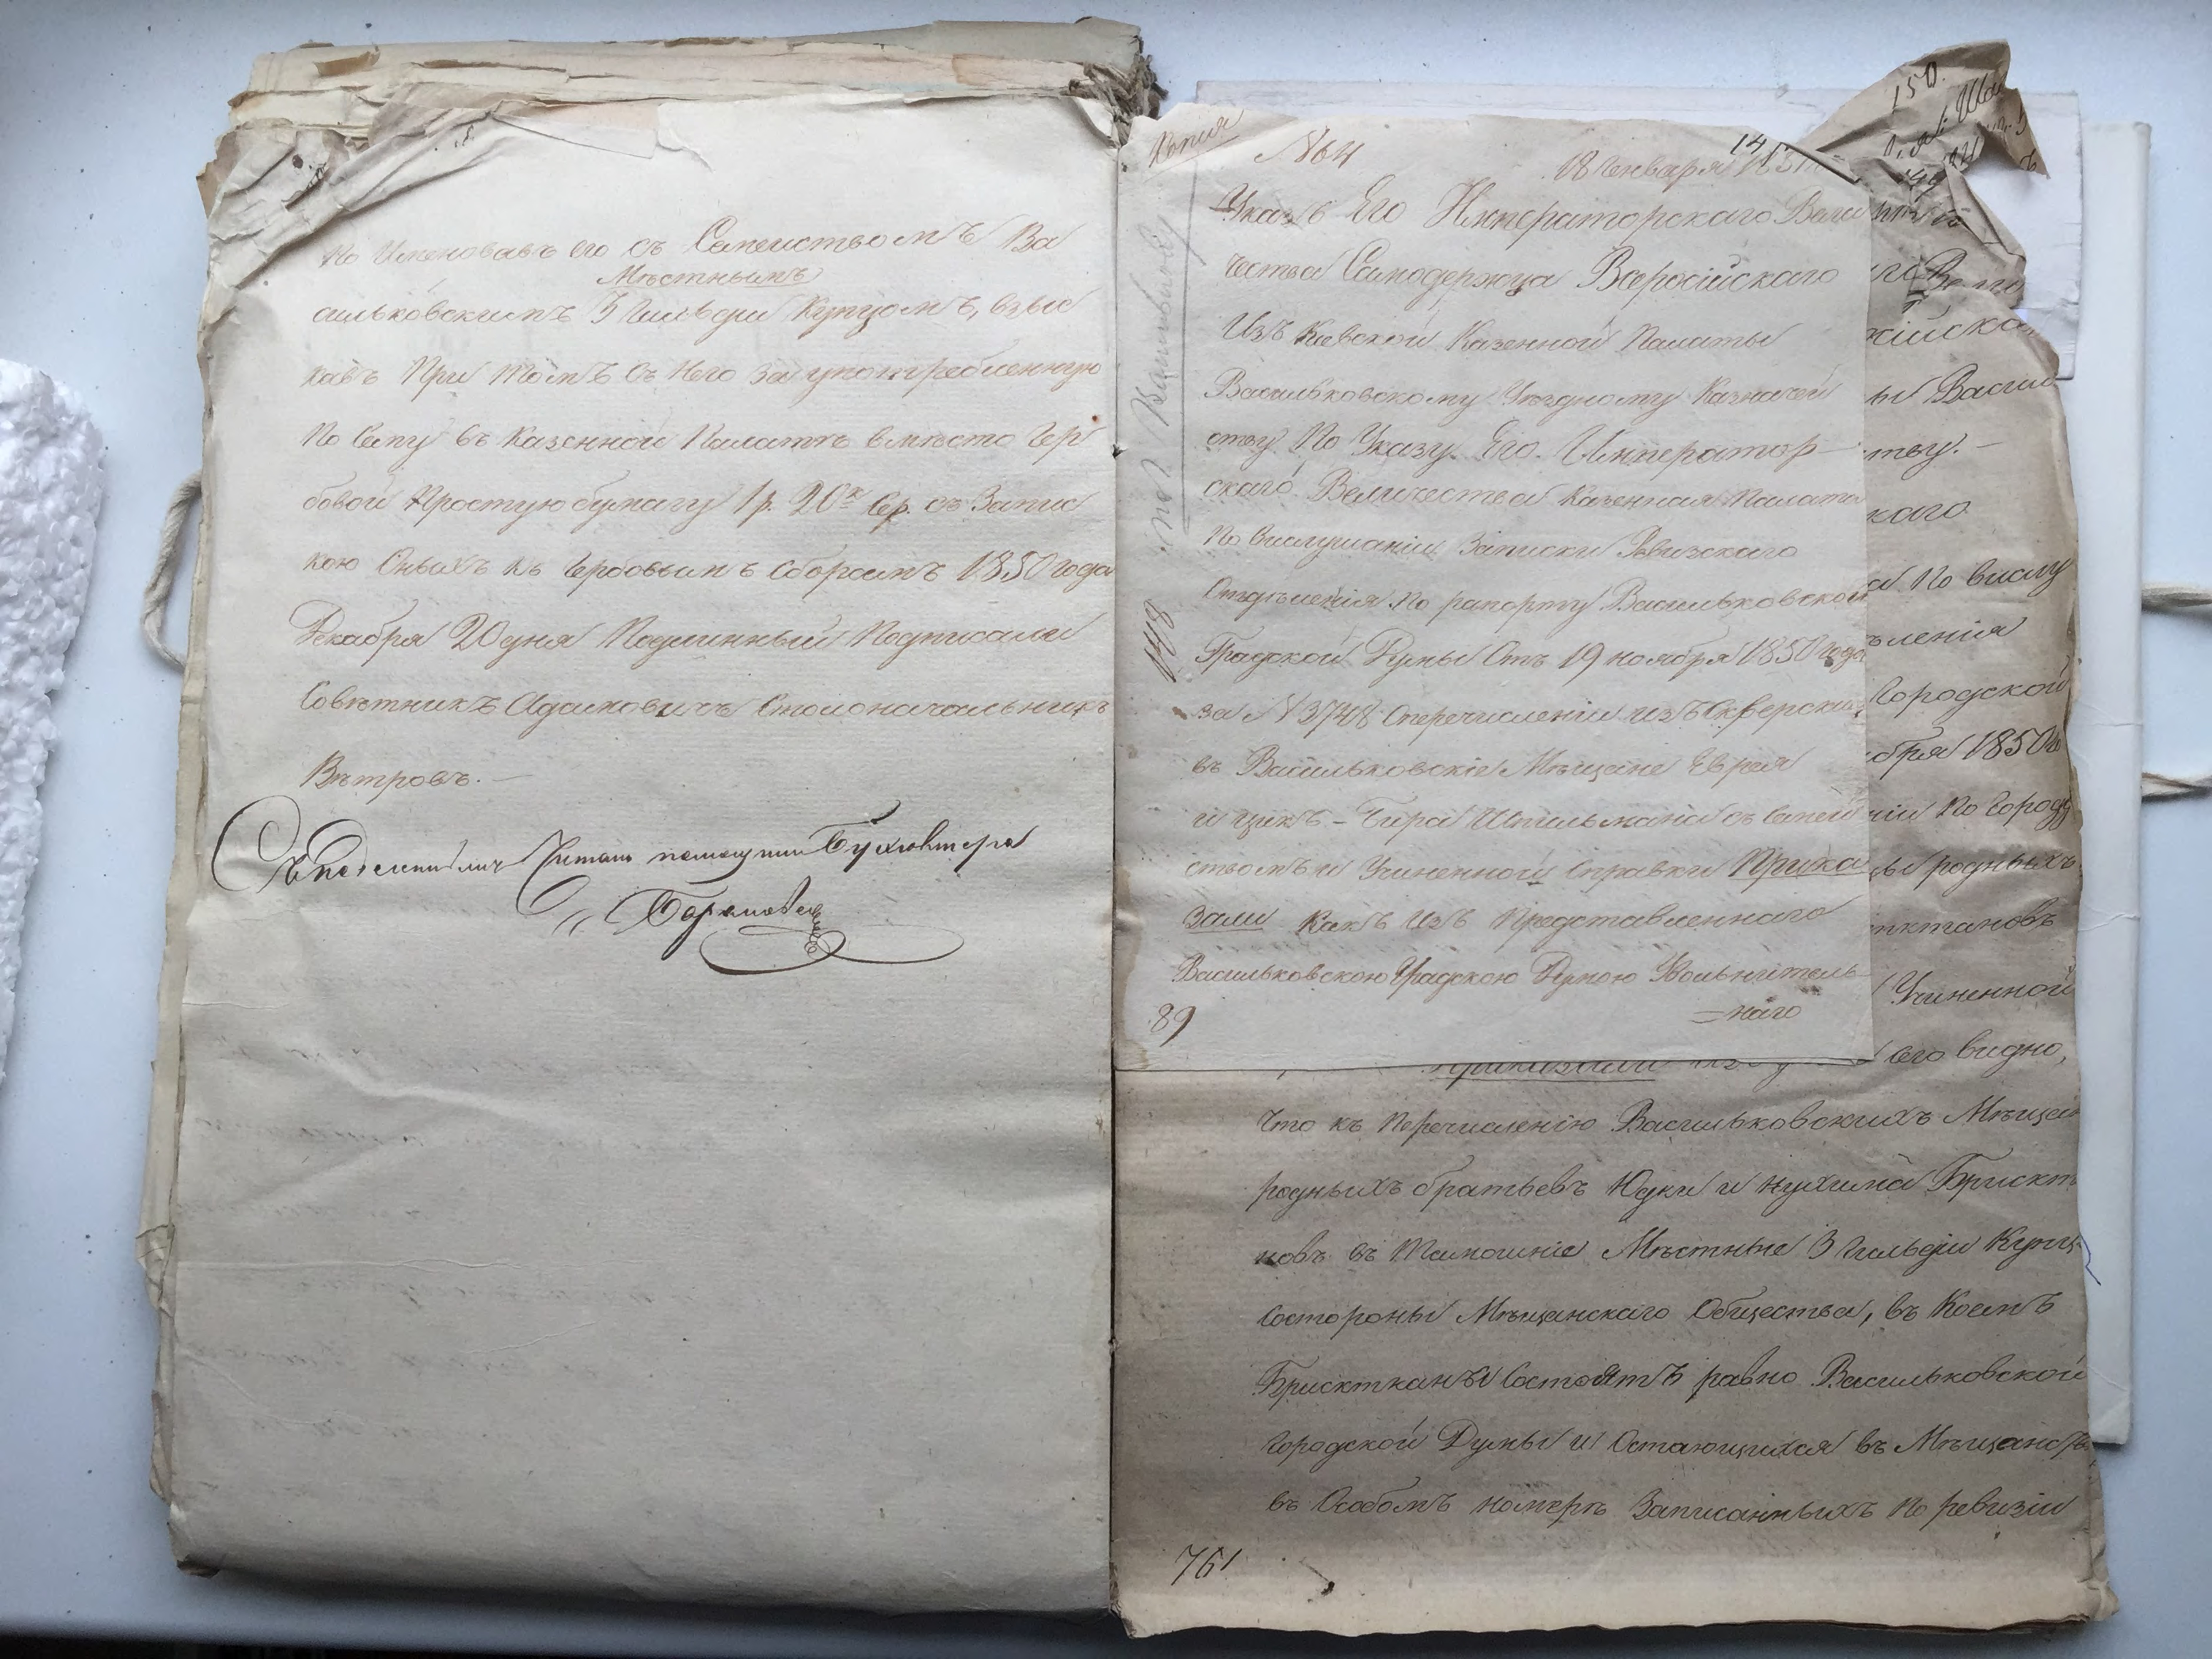 но Именовавъ его съ Семействомъ Ва
Мѣстнымъ
сильковскимъ 3 Гильдіи Купцомъ, взыс
кавъ При томъ съ Него за употребленную
По сему въ Казенной Палатѣ вмѣсто Гер
бовой Простую бумагу 1 р. 20 к. Сер. съ Запис
кою Оныхъ къ Гербовымъ Сборамъ 1850 года
Декабря 20 дня Подлинный Подписали
Совѣтникъ Адамовичъ Столоначальникъ
Вѣтровъ. —
Съ Подлиннымъ Читалъ помощникъ Бухгалтера
Копія
№ 64
14
18 Января 1851
Указъ Его Императорскаго Вели
чества Самодержца Всероссійскаго
Изъ Кіевской Казенной Палаты
Васильковскому Уѣздному Казначей
ству. По Указу Его Император-
скаго Величества Казенная Палата
По Выслушаніи Записки Ревизскаго
Отдѣленія по рапорту Васильковской
Градской Думы Отъ 19 ноября 1850 года
за № 3748 Оперечисленіи изъ Сквирскихъ
въ Васильковскіе Мѣщане Еврея
Ицикъ-Бера Шпильмана съ Семей
ствомъ и Учиненной Справки Прика
зали Какъ Изъ Представленнаго
Васильковскою Градскою Думою Увольнитель-
=наго
148
89
150
кійска
ы Васил
тву. —
каго
а По выслу
ѣленія
Городской
бря 1850
ніи По Город
ы родныхъ
пктановъ
Учиненной
Приказали
сего видно,
Что къ Перечисленію Васильковскихъ Мѣщан
родныхъ братьевъ Юдки и Нухима Брискт
новъ въ Тамошніе Мѣстные 3 Гильдіи Купц
Состороны Мѣщанскаго Общества, въ Коемъ
Бриксткань Состоятъ равно Васильковской
Городской Думы и Остающихся въ Мѣщанст
въ Особомъ номерѣ Записанныхъ По ревизіи
761